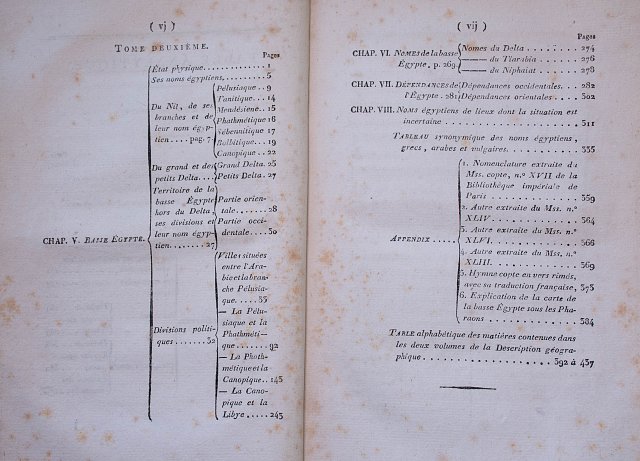 ( vj )
TOME DEUXIÈME.
Pages
CHAP. V. BASSE ÉGYPTE.
État physique.............. 1
Ses noms égyptiens......... 5
Du Nil, de ses
branches et de
leur nom égyp-
tien.... pag. 7
Pélusiaque.. 9
Tanitique... 14
Mendésiène.. 15
Phathmétique 16
Sébennitique 17
Bolbitique.. 19
Canopique.. 22
Du grand et des
petits Delta.
Grand Delta. 23
Petits Delta. 27
Territoire de la
basse Égypte
hors du Delta,
ses divisions et
leur nom égyp-
tien....... 27
Partie orien-
tale...... 28
Partie occi-
dentale.... 30
Divisions politi-
ques...... 32
Villes situées
entre l'Ara-
bie et la bran-
che Pélusia-
que..... 33
— La Pélu-
siaque et la
Phathméti-
que...... 92
— La Phath-
métique et la
Canopique.. 143
— La Cano-
pique et la
Libye..... 243
( vij )
Pages
CHAP. VI. NOMES de la basse
Égypte, p. 269.
Nomes du Delta........ 274
——— du Tiarabia..... 276
——— du Niphaiat..... 278
CHAP. VII. DÉPENDANCES de
l'Égypte. 281
Dépendances occidentales.. 282
Dépendances orientales.... 302
CHAP. VIII. NOMS égyptiens de lieux dont la situation est
incertaine................ 311
TABLEAU synonymique des noms égyptiens,
grecs, arabes et vulgaires............ 335
APPENDIX.....
1. Nomenclature extraite du
Mss. copte, n.° XVII de la
Bibliothèque impériale de
Paris................ 359
2. Autre extraite du Mss. n.°
XLIV................ 364
3. Autre extraite du Mss. n.°
XLVI................ 366
4. Autre extraite du Mss. n.°
XLIII............... 369
5. Hymne copte en vers rimés,
avec sa traduction française, 373
6. Explication de la carte de
la basse Égypte sous les Pha-
raons............... 384
TABLE alphabétique des matières contenues dans
les deux volumes de la Description géogra-
phique................ 392 à 437